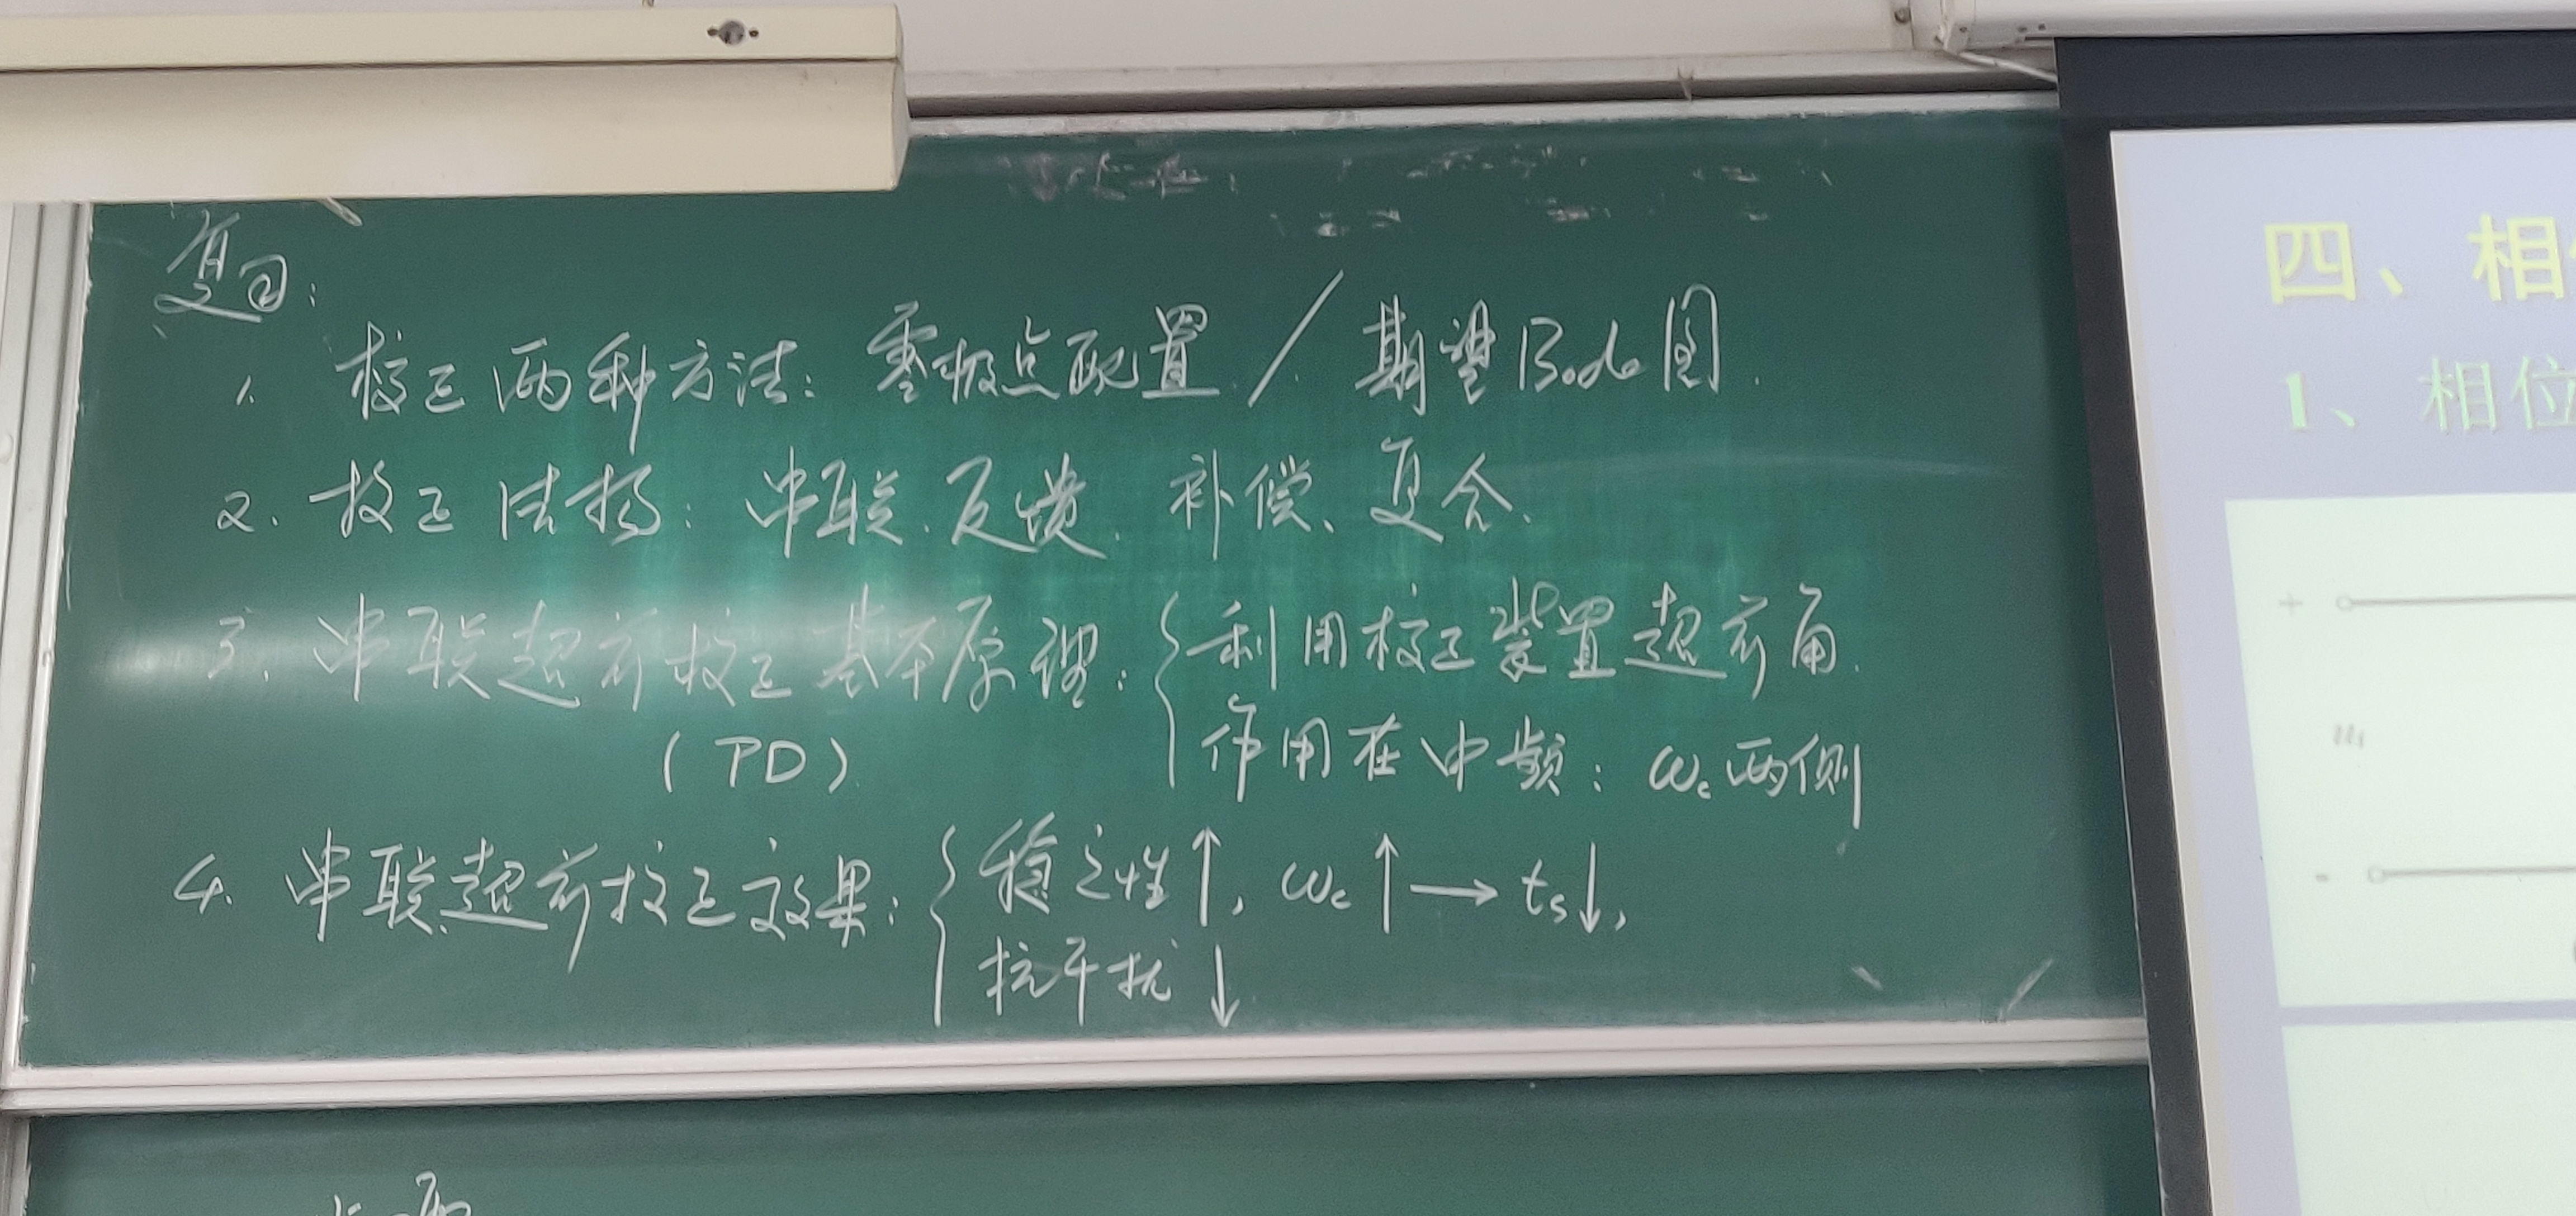 复习:
1. 校正两种方法: 零极点配置 / 期望Bode图.
2. 校正结构: 串联、反馈、补偿、复合.
3. 串联超前校正基本原理: { 利用校正装置超前角.
(PD) 作用在中频: ωc两侧
4. 串联超前校正效果: { 稳定性↑, ωc↑ → ts↓,
抗干扰↓
四、相
1、相位
+
-